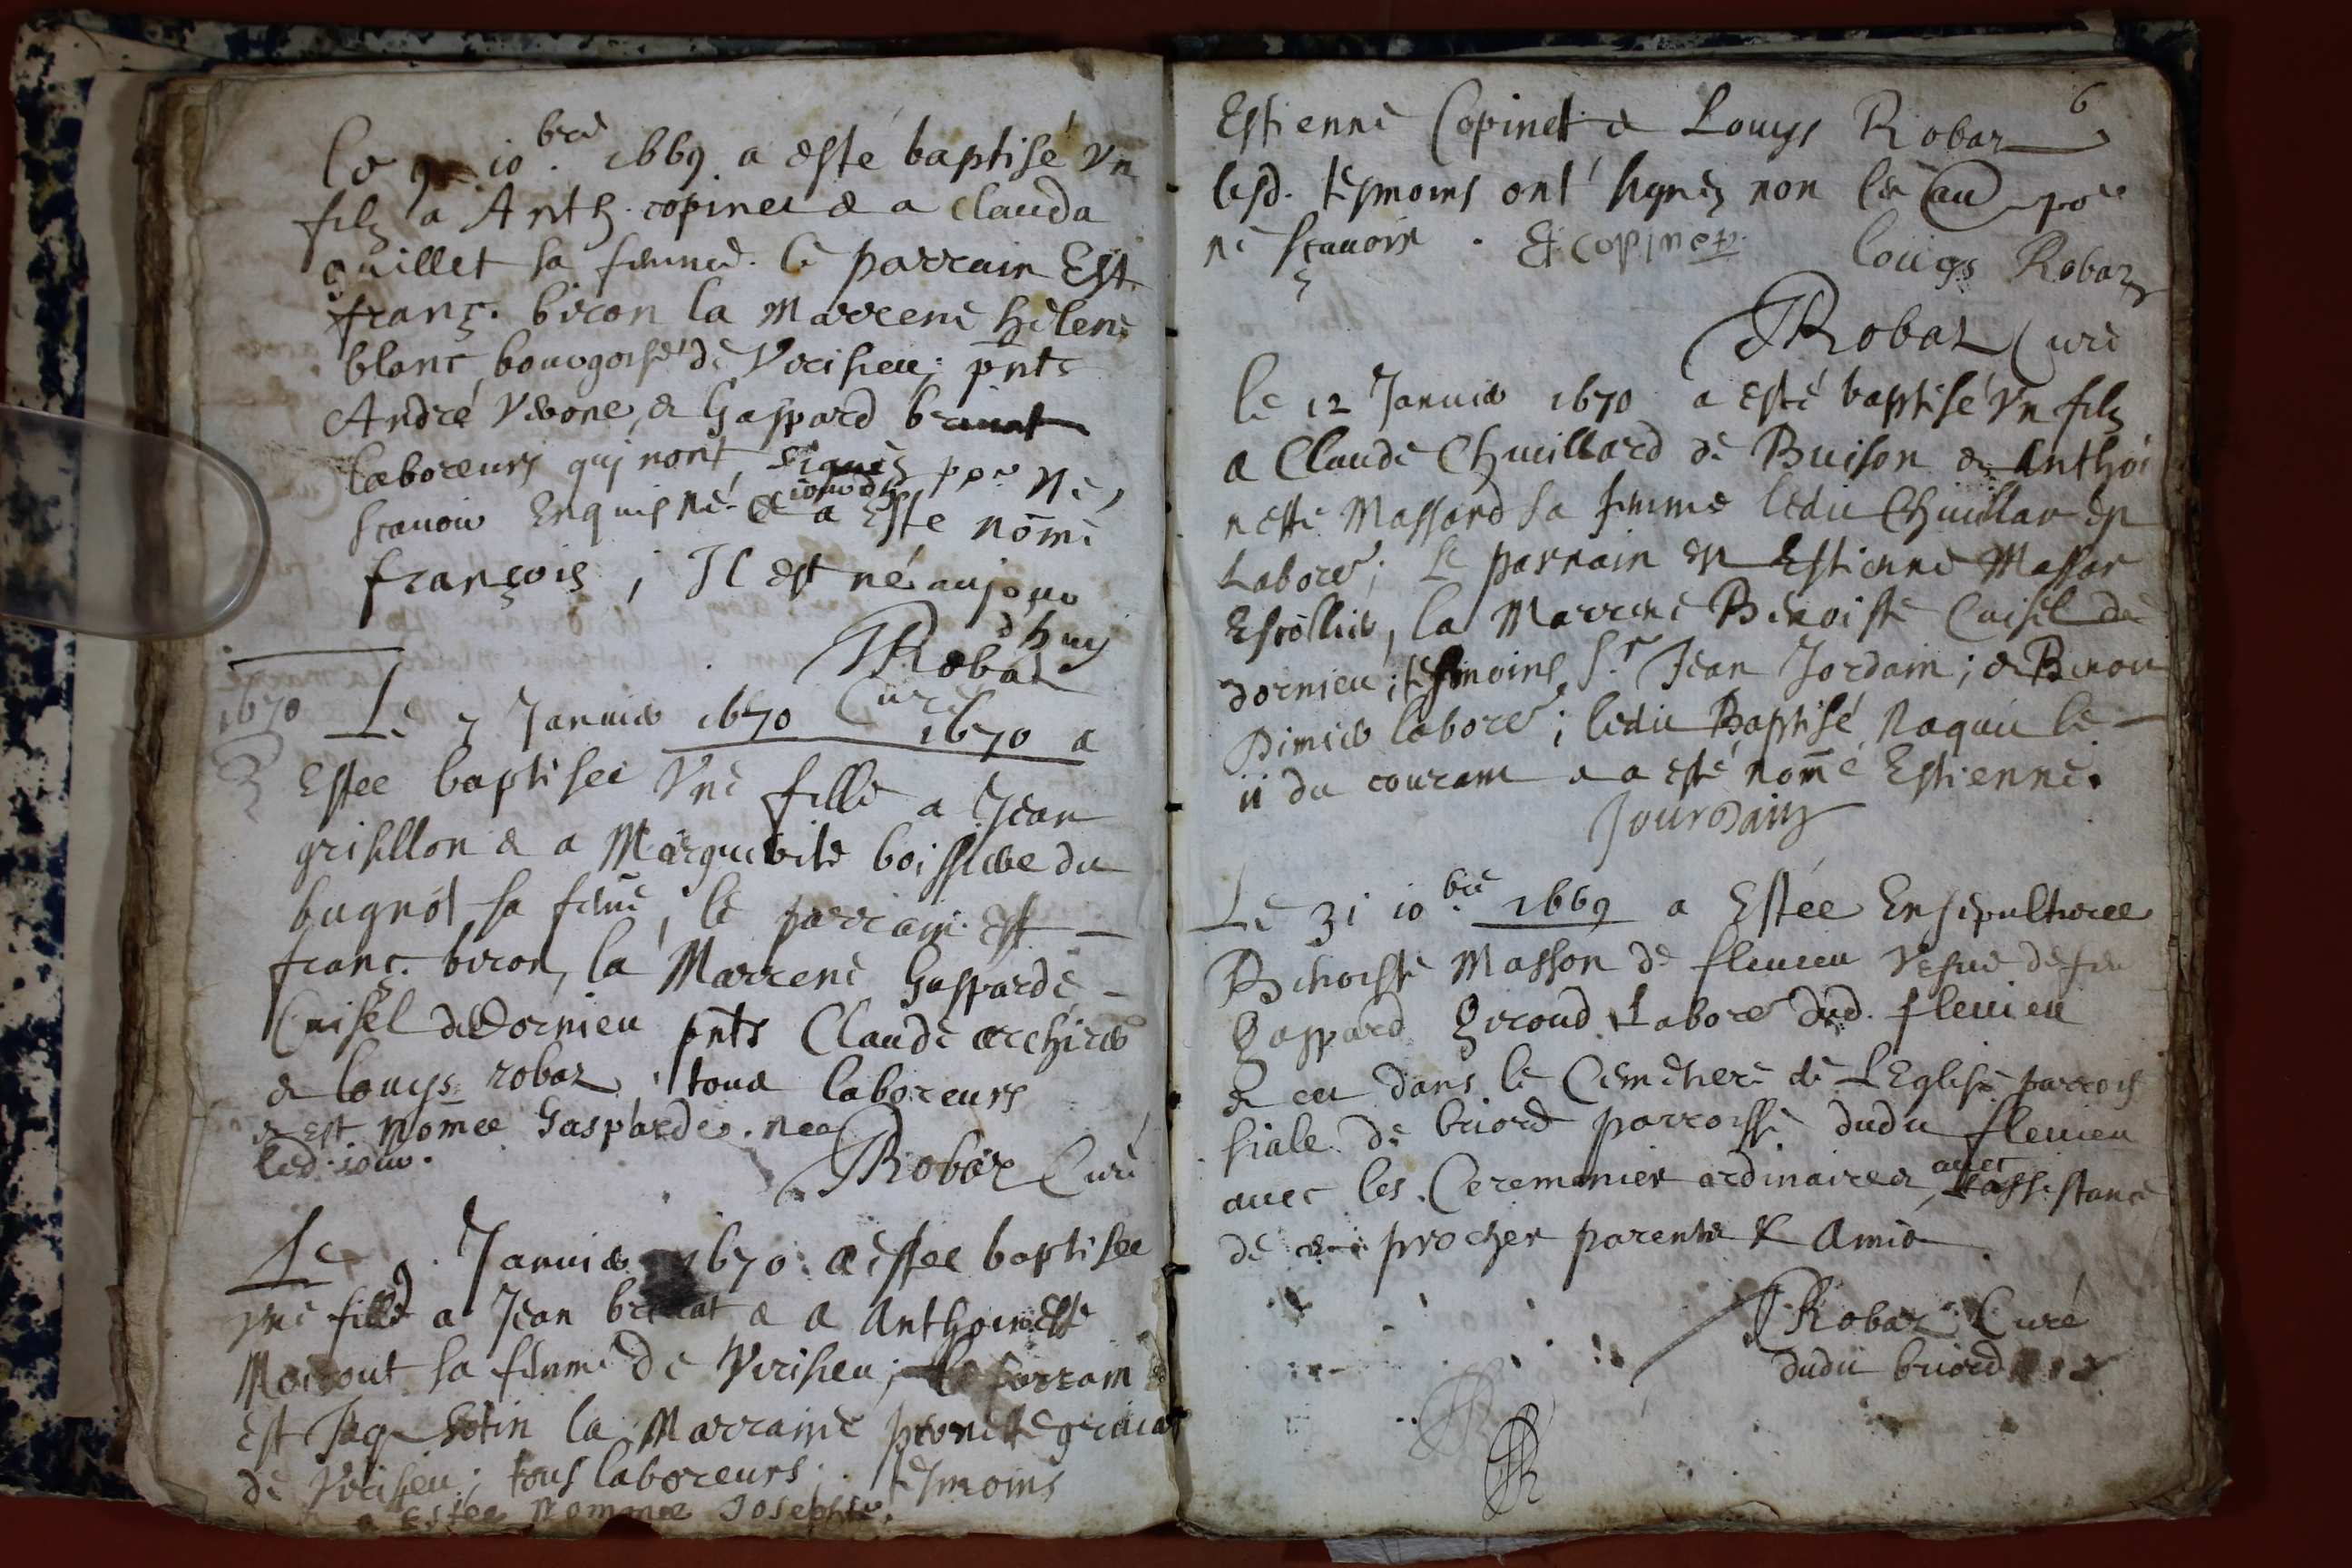 Le 9 10.bre 1669 a esté baptisé Vn
filz a Anth. copinet & a Clauda
quillet sa femme. le parrain Est
franç. biron la Marrene helene
blanc, bourgoise de Verisieu; pnts
André & Gaspard
laboreurs qui nont signés pour ne
scauoir Enquis ne & a Este nõmé
françois, Il est né aujour
dhuy
Robaz
Curé
1670
Le 7 Januier 1670 1670 a
Estee baptisee Vne fille a Jean
grisillon & a Marguerite boissiere du
bugnot sa feme, le parrain est
franç. biron, la Marrene Gasparde
Cuisel de Dornieu pnts Claude archier
& louys robaz tous laboreurs
& est nomee Gasparde. nee
led. iour.
Robaz Curé
Le 9. Januier 1670. a estee baptisee
vne fille a Jean & a Anthoineste
sa femme de Verisieu; le parrain
est Jaq. la Marraine
de Verisieu; tous laboreurs. tesmoins
a Estee Nommee Josephte.
6
Estienne Copinet & Louys Robaz
lesd. tesmoins ont signez non les au pour
ne sçauoir. Et copinet louys Robaz
Robaz Curé
le 12 Januier 1670 a esté baptisé Vn filz
a Claude Chuillard de Buison & Anthoi
nette Massard sa femme ledit Chuillar est
Labore; le parrain est Estienne Massar
Escollier, la Marrene Benoiste Cuisel de
dornieu; tesmoins Sr Jean Jordain; & Benoit
Dimier labore; ledit Baptisé Naquit le
11 du courant & a esté nomé Estienne.
Jourdain
Le 31 10.bre 1669 a Estée Ensepulturee
Benoiste Masson de fleuieu Vefue de feu
Gaspard Giroud Labore dud. fleuieu
& ce dans le Cemetiere de LEglise parrois
siale de briord parroisse dudit fleuieu
auec les Ceremonies ordinaires, auec Lassistance
de proches parents & Amis.
Robaz Curé
dudit briord